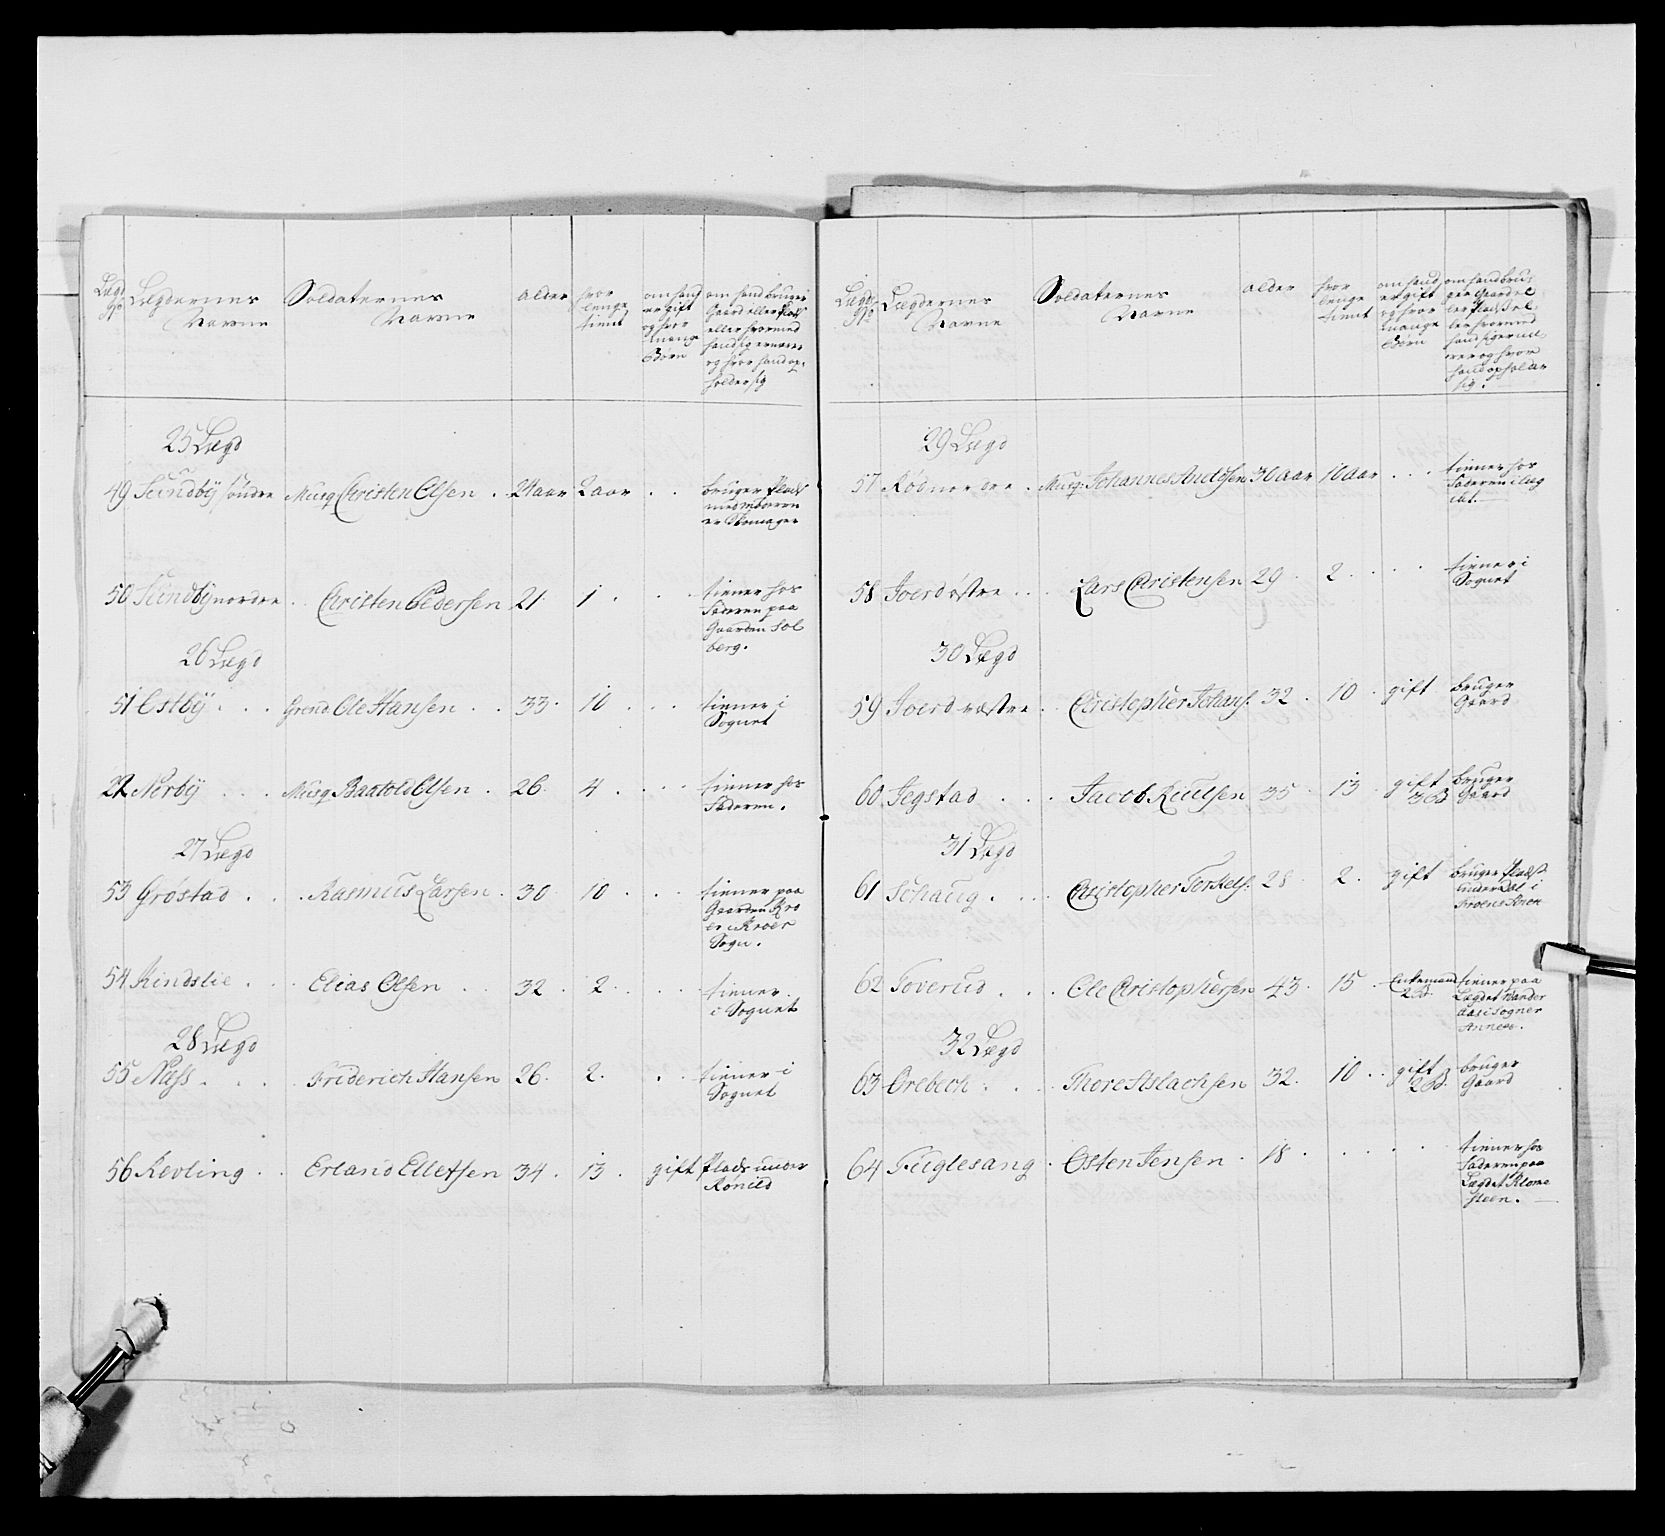 Lægd No
Lægdernes Navne
Soldaternes Navne
alder
hvor lenge tient
om hand er gift og hvor mange Børn
om hand bruger Gaard eller Plads eller hvormed hand sig ernærer og hvor hand opholder sig
25 Lægd
49 Sundby søndre Musq Christen Olsen . 24 aar 2 aar . . bruger Plads
er Skomager
50 Sundby nordre . Christen Pedersen 21 . 1 . . . tiener hos
Faderen paa
Gaarden Sol
berg.
26 Lægd
51 Østby . . . Grend Ole Hansen . . 33 . 10 . . . tiener i
Sognet
22 Nerby . . . Musq Baatold Olsen . 26 . 4 . . . . tiener hos
Faderen.
27 Lægd
53 Grøstad . . . Rasmus Larsen . 30 . 10 . . . tiener paa
Gaarden Kro
er i Kroer
Sogn.
54 Kindslie . . . Elias Olsen . . 32 . 2 . . . . tiener
i Sognet
28 Lægd
55 Næss . . . . Friderich Hansen 26 . 2 . . . tiener i
Sognet
56 Revling . . Erland Elletsen 34 . 13 . gift Plads under
Rønild
Lægd No
Lægdernes Navne
Soldaternes Navne
alder
hvor lenge tient
om hand er gift og hvor mange Børn
om hand bruger Gaard eller Plads eller hvormed hand sig ernærer og hvor hand opholder sig.
29 Lægd
57 Rød nordre . Musq. Johannes Andersen 30 aar 10 aar . . . tiener hos
Faderen i læg
det.
58 Joerd østre . . . Lars Christensen 29 . 2 . . . . tiener i
Sognet
30 Lægd
59 Joerd væstre . Christopher Johans. 32 . 10 . gift bruger
Gaard
60 Jegstad . . . Jacob Ruulsen 35 . 13 . gift bruger
3 B Gaard
31 Lægd
61 Schaug . . . . Christopher Torkels. 28 . 2 . gift bruger Plads
under Dal i
62 Toverud . . . Ole Christophersen 43 . 15 . Enkemand tiener paa
2 B. Lægdet
Sogner
Annex.
32 Lægd
63 Ørebech . . . Thore Aslachsen 32 . 10 . . gift bruger
2 B. Gaard
64 Fuglesang . Østen Jensen . 18 . . . . . tiener hos
Faderen paa
Lægdet Klome
steen.